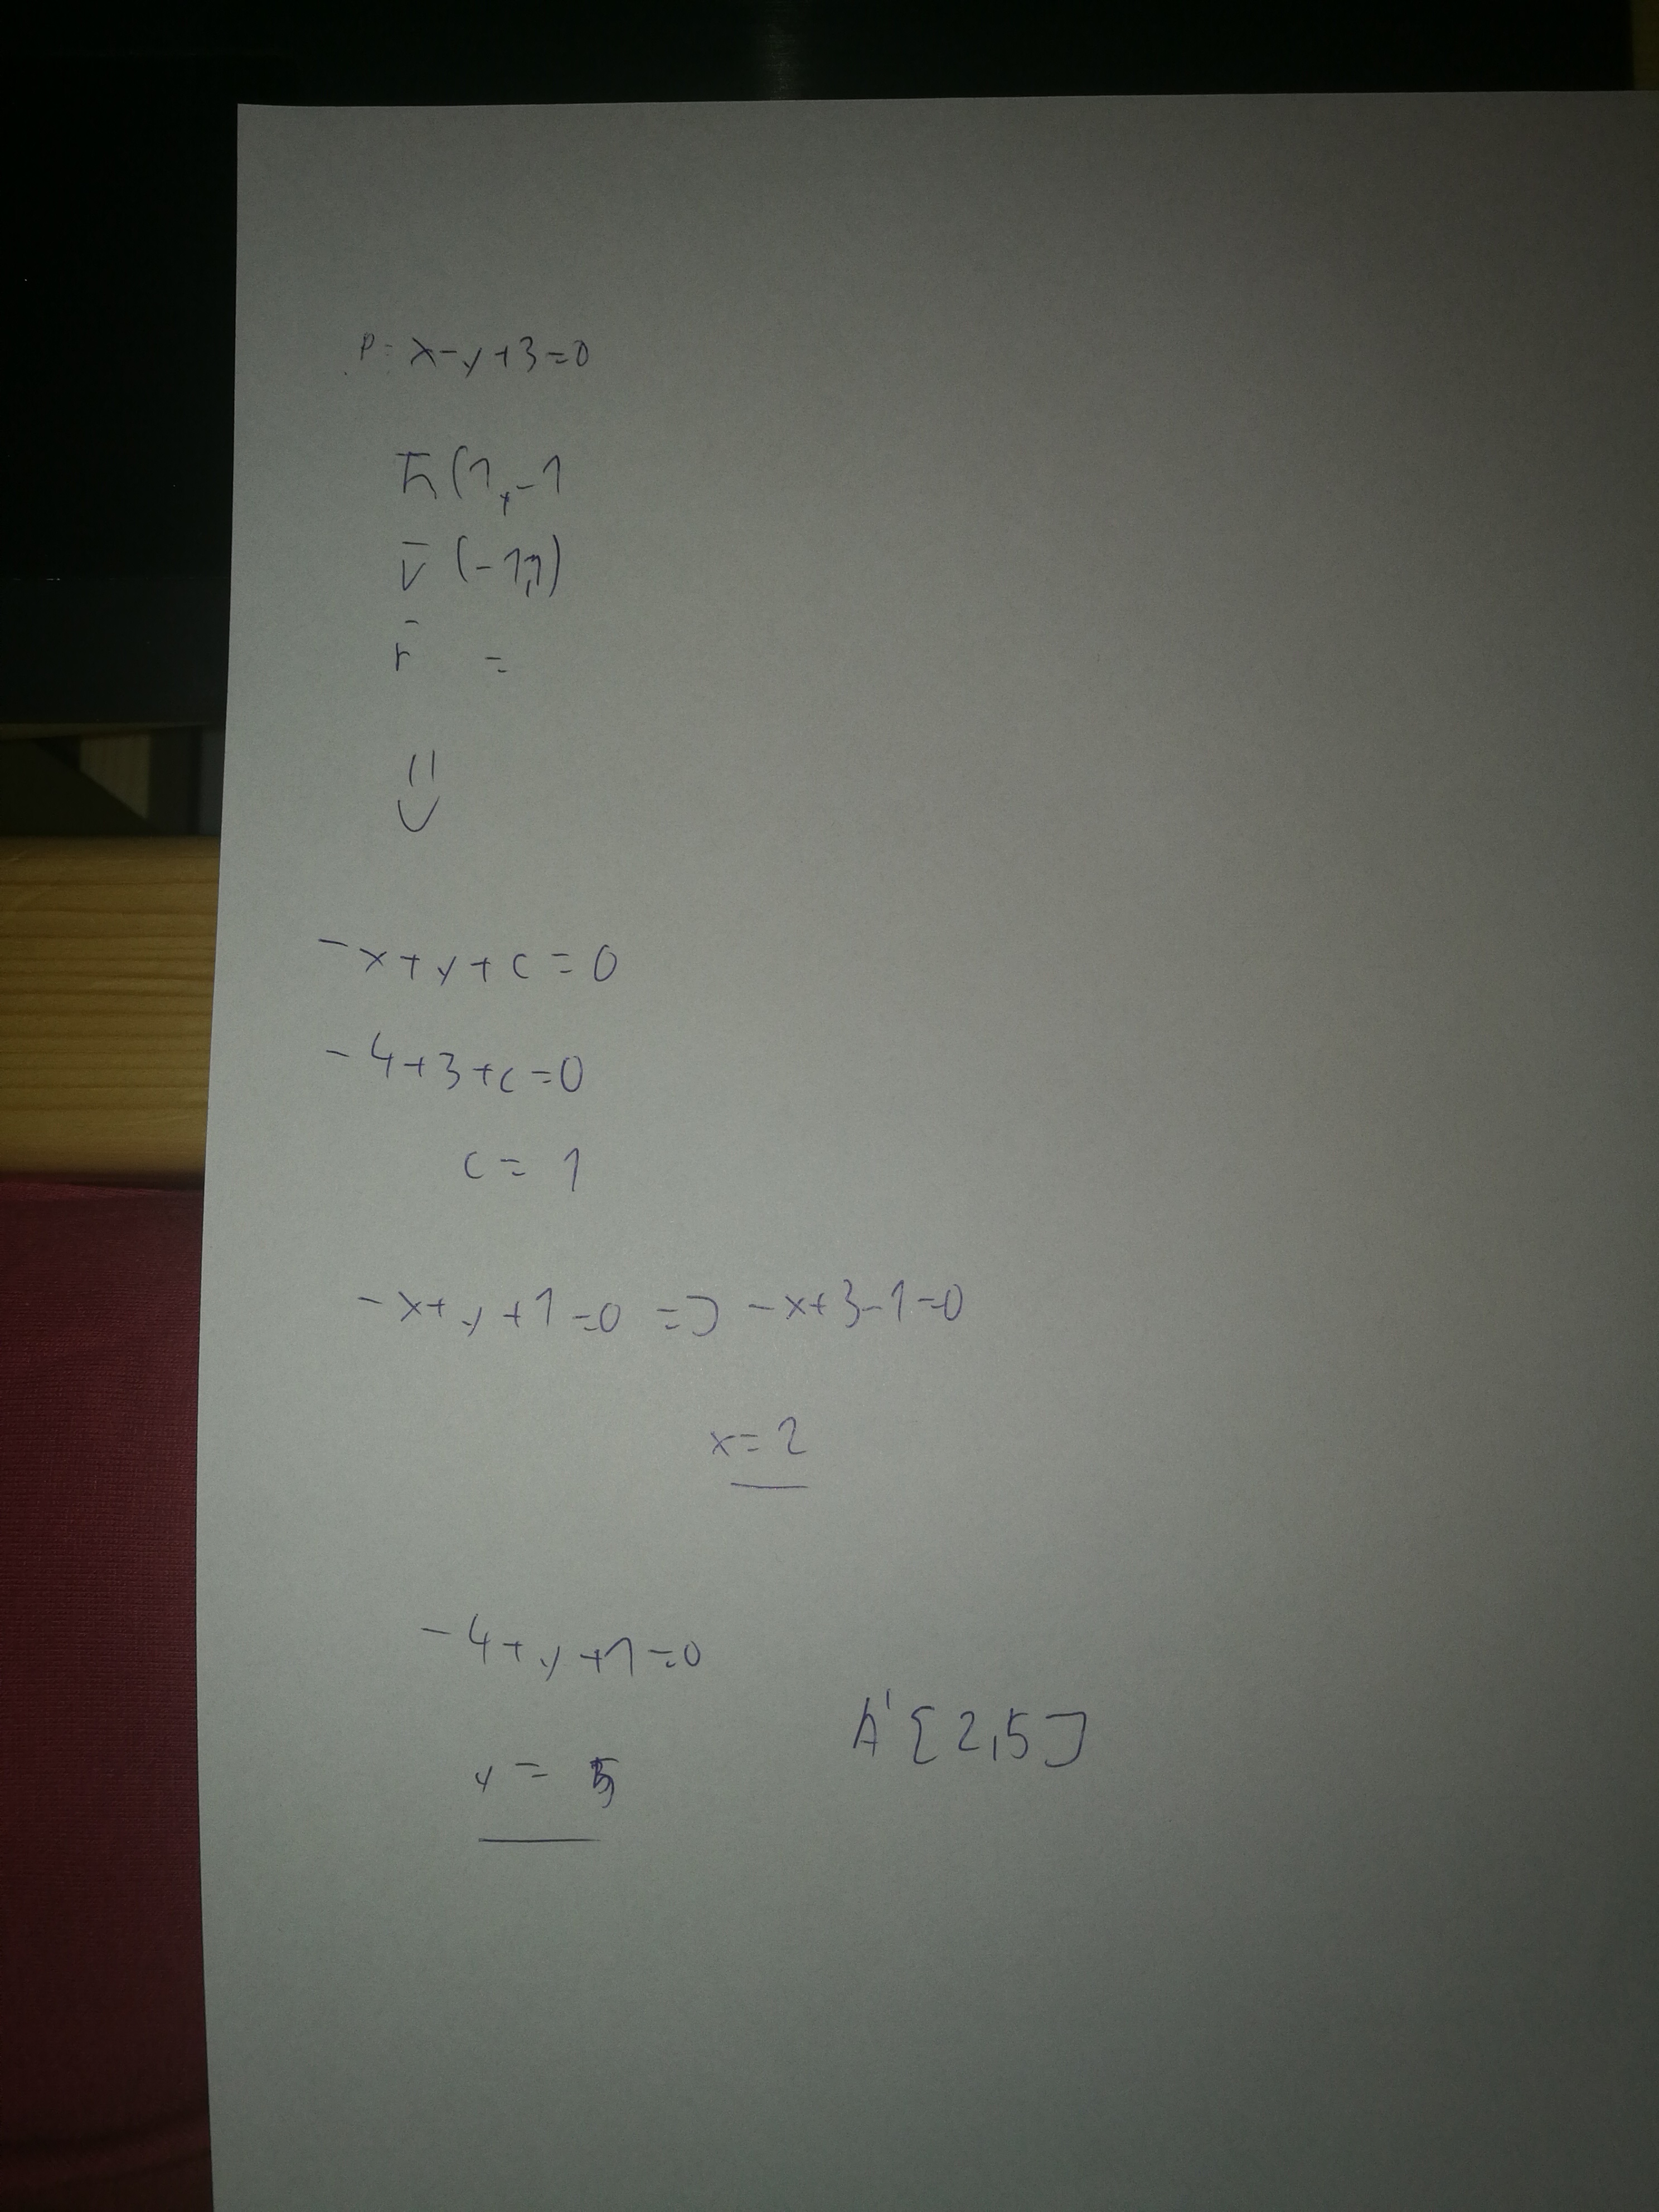 p: x-y+3=0
n̄ (1,-1
v̄ (-1,1)
r̄ =
-x+y+c=0
-4+3+c=0
c= 1
-x+y+1=0 => -x+3-1=0
x=2
-4+y+1=0
A' [2,5]
y = 5